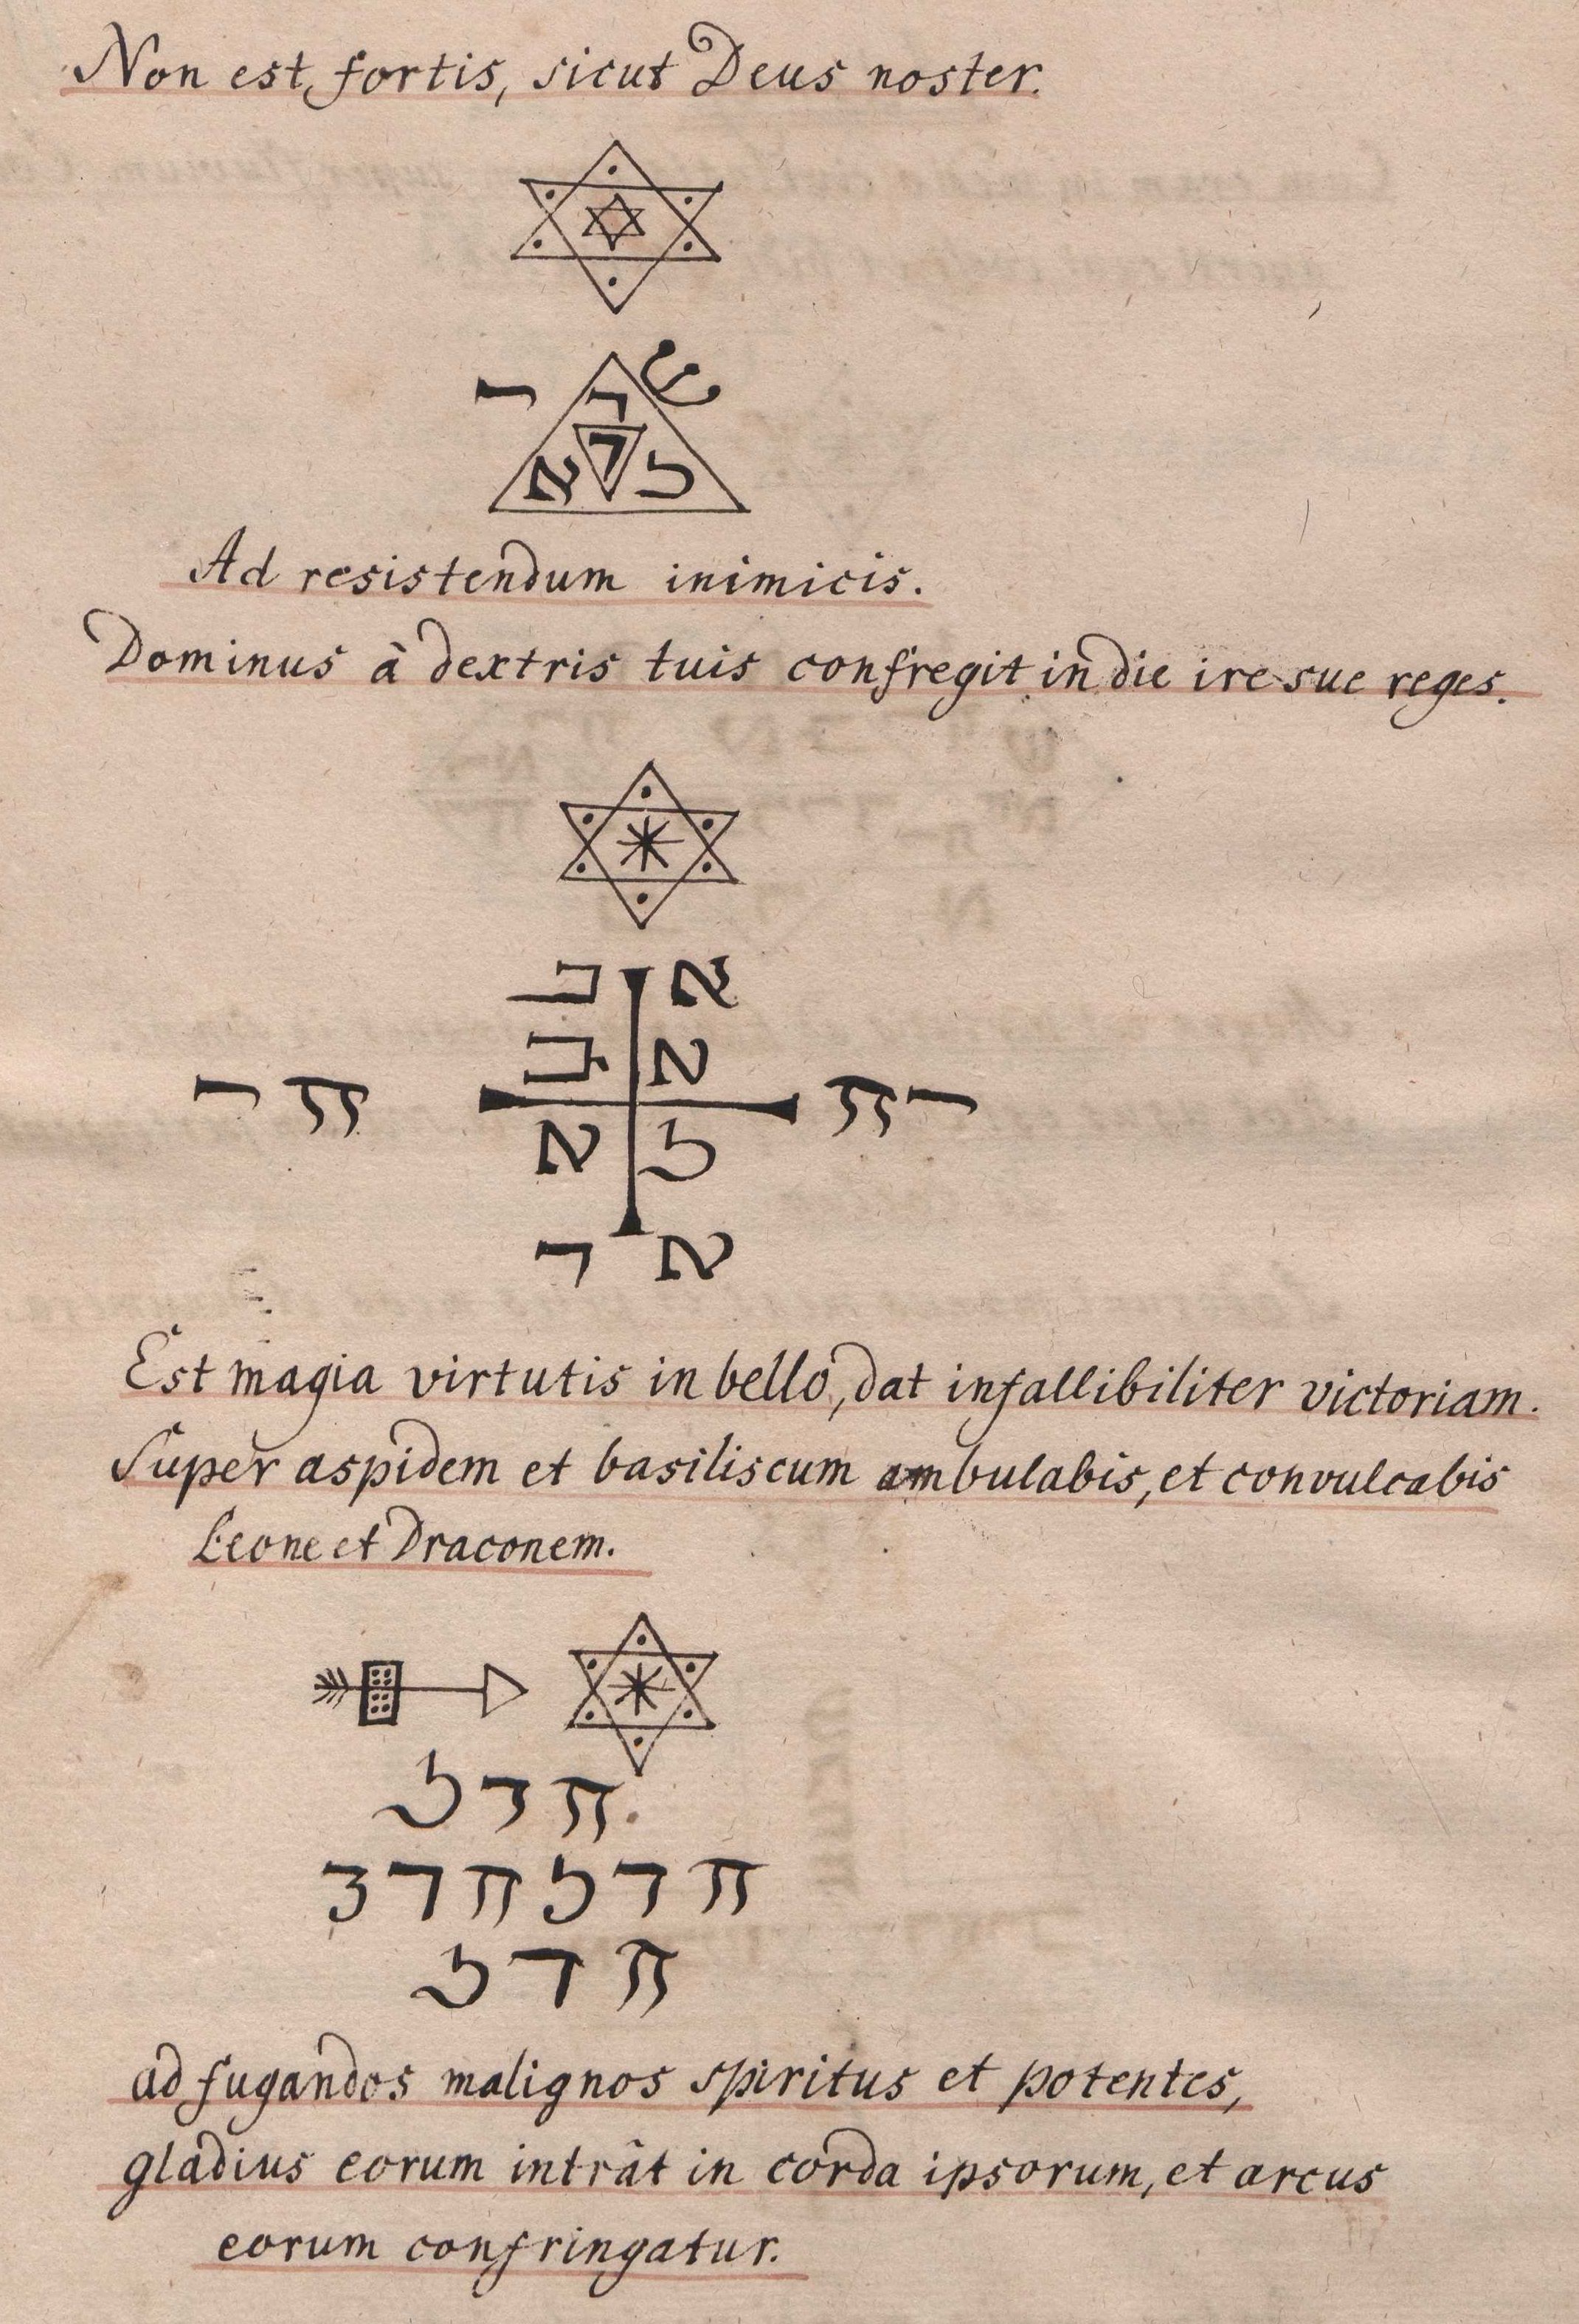 Non est fortis, sicut Deus noster.
Ad resistendum inimicis.
Dominus à dextris tuis confregit in die ire sue reges.
Est magia virtutis in bello, dat infallibiliter victoriam.
Super aspidem et basiliscum ambulabis, et convulcabis
Leone et Draconem.
ad fugandos malignos spiritus et potentes,
gladius eorum intrât in corda ipsorum, et arcus
eorum confringatur.